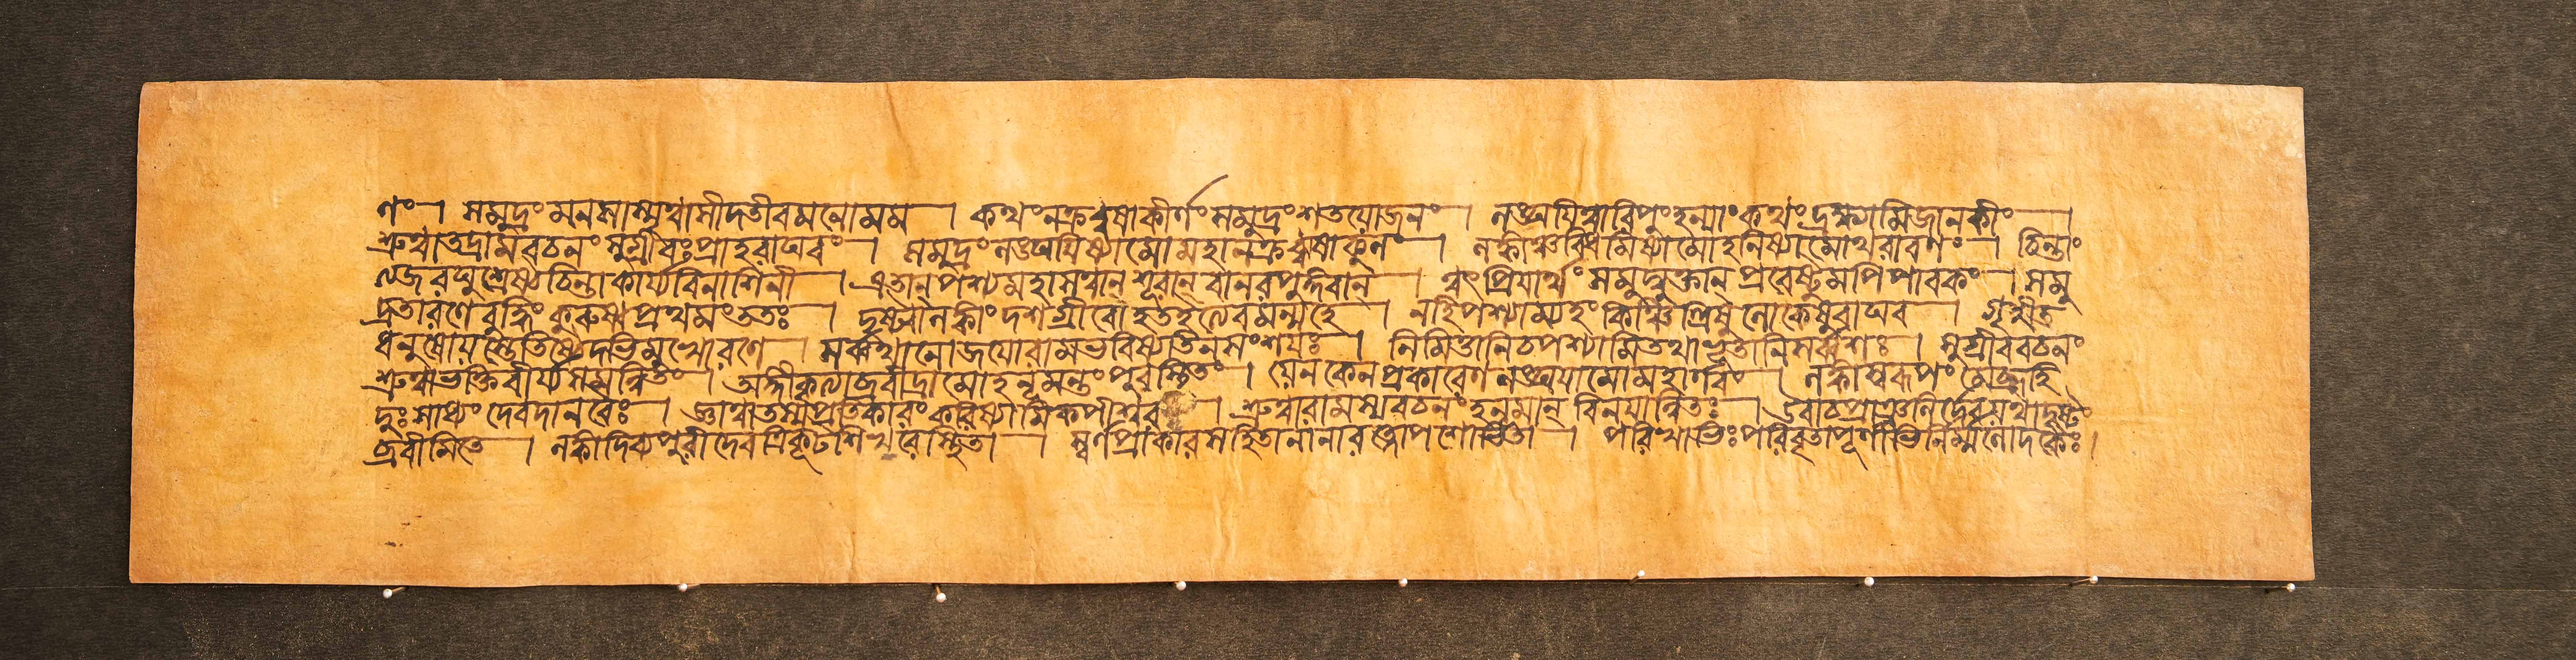 ণং। সমুদ্রং মনসা স্মৃত্বা সীদতীব মনো মম। কথং নক্রঝষাকীর্ণং সমুদ্রং শতযোজনং। লঙ্ঘযিত্বা রিপুং হন্যাং কথং দ্রক্ষ্যামি জানকীং।
শ্রুত্বা তদ্রামবচনং সুগ্রীবঃ প্রাহ রাঘবং। সমুদ্রং লঙ্ঘযিষ্যামো মহানক্রঝষাকুলং। লঙ্কাঞ্চ বিধমিষ্যামো হনিষ্যামোথ রাবণং। চিন্তাং
ত্যজ রঘুশ্রেষ্ঠ চিন্তা কার্য্যবিনাশিনী। এতান্ পশ্য মহাসত্বান্ শূরান্ বানরপুঙ্গবান্। ত্বৎপ্রিযার্থং সমুদ্যুক্তান্ প্রবেষ্টুমপি পাবকং। সমু
দ্রতারণে বুদ্ধিং কুরুষ্ব প্রথমং ততঃ। দৃষ্ট্বা লঙ্কাং দশগ্রীবো হত ইত্যেব মন্মহে। নহি পশ্যাম্যহং কিঞ্চিত্ত্রিষু লোকেষু রাঘব। গৃহীত
ধনুষো যস্তে তিষ্ঠেদভিমুখো রণে। সর্ব্বথা নো জযো রাম ভবিষ্যতি ন সংশযঃ। নিমিত্তানি চ পশ্যামি তথা ভূতানি সর্ব্বশঃ। সুগ্রীববচনং
শ্রুত্বা ভক্তিবীর্য্যসমন্বিতং। অঙ্গীকৃত্যাব্রবীদ্রামো হনূমন্তং পুরস্থিতং। যেন কেন প্রকারেণ লঙ্ঘযামো মহার্ণবং। লঙ্কাস্বরূপং মে ব্রূহি
দুঃসাধ্যং দেবদানবৈঃ। জ্ঞাত্বা তস্য প্রতিকারং করিষ্যামি কপীশ্বর। শ্রুত্বা রামস্য বচনং হনুমান্ বিনযান্বিতঃ। উবাচ প্রাঞ্জলির্দেব যথা দৃষ্টং
ব্রবীমি তে। লঙ্কা দিব্যপুরী দেব ত্রিকূটশিখরে স্থিতা। স্বর্ণপ্রাকারসহিতা নানারত্নোপশোভিতা। পরিখাভিঃ পরিবৃতা পূর্ণাভির্নির্ম্মলোদকৈঃ।